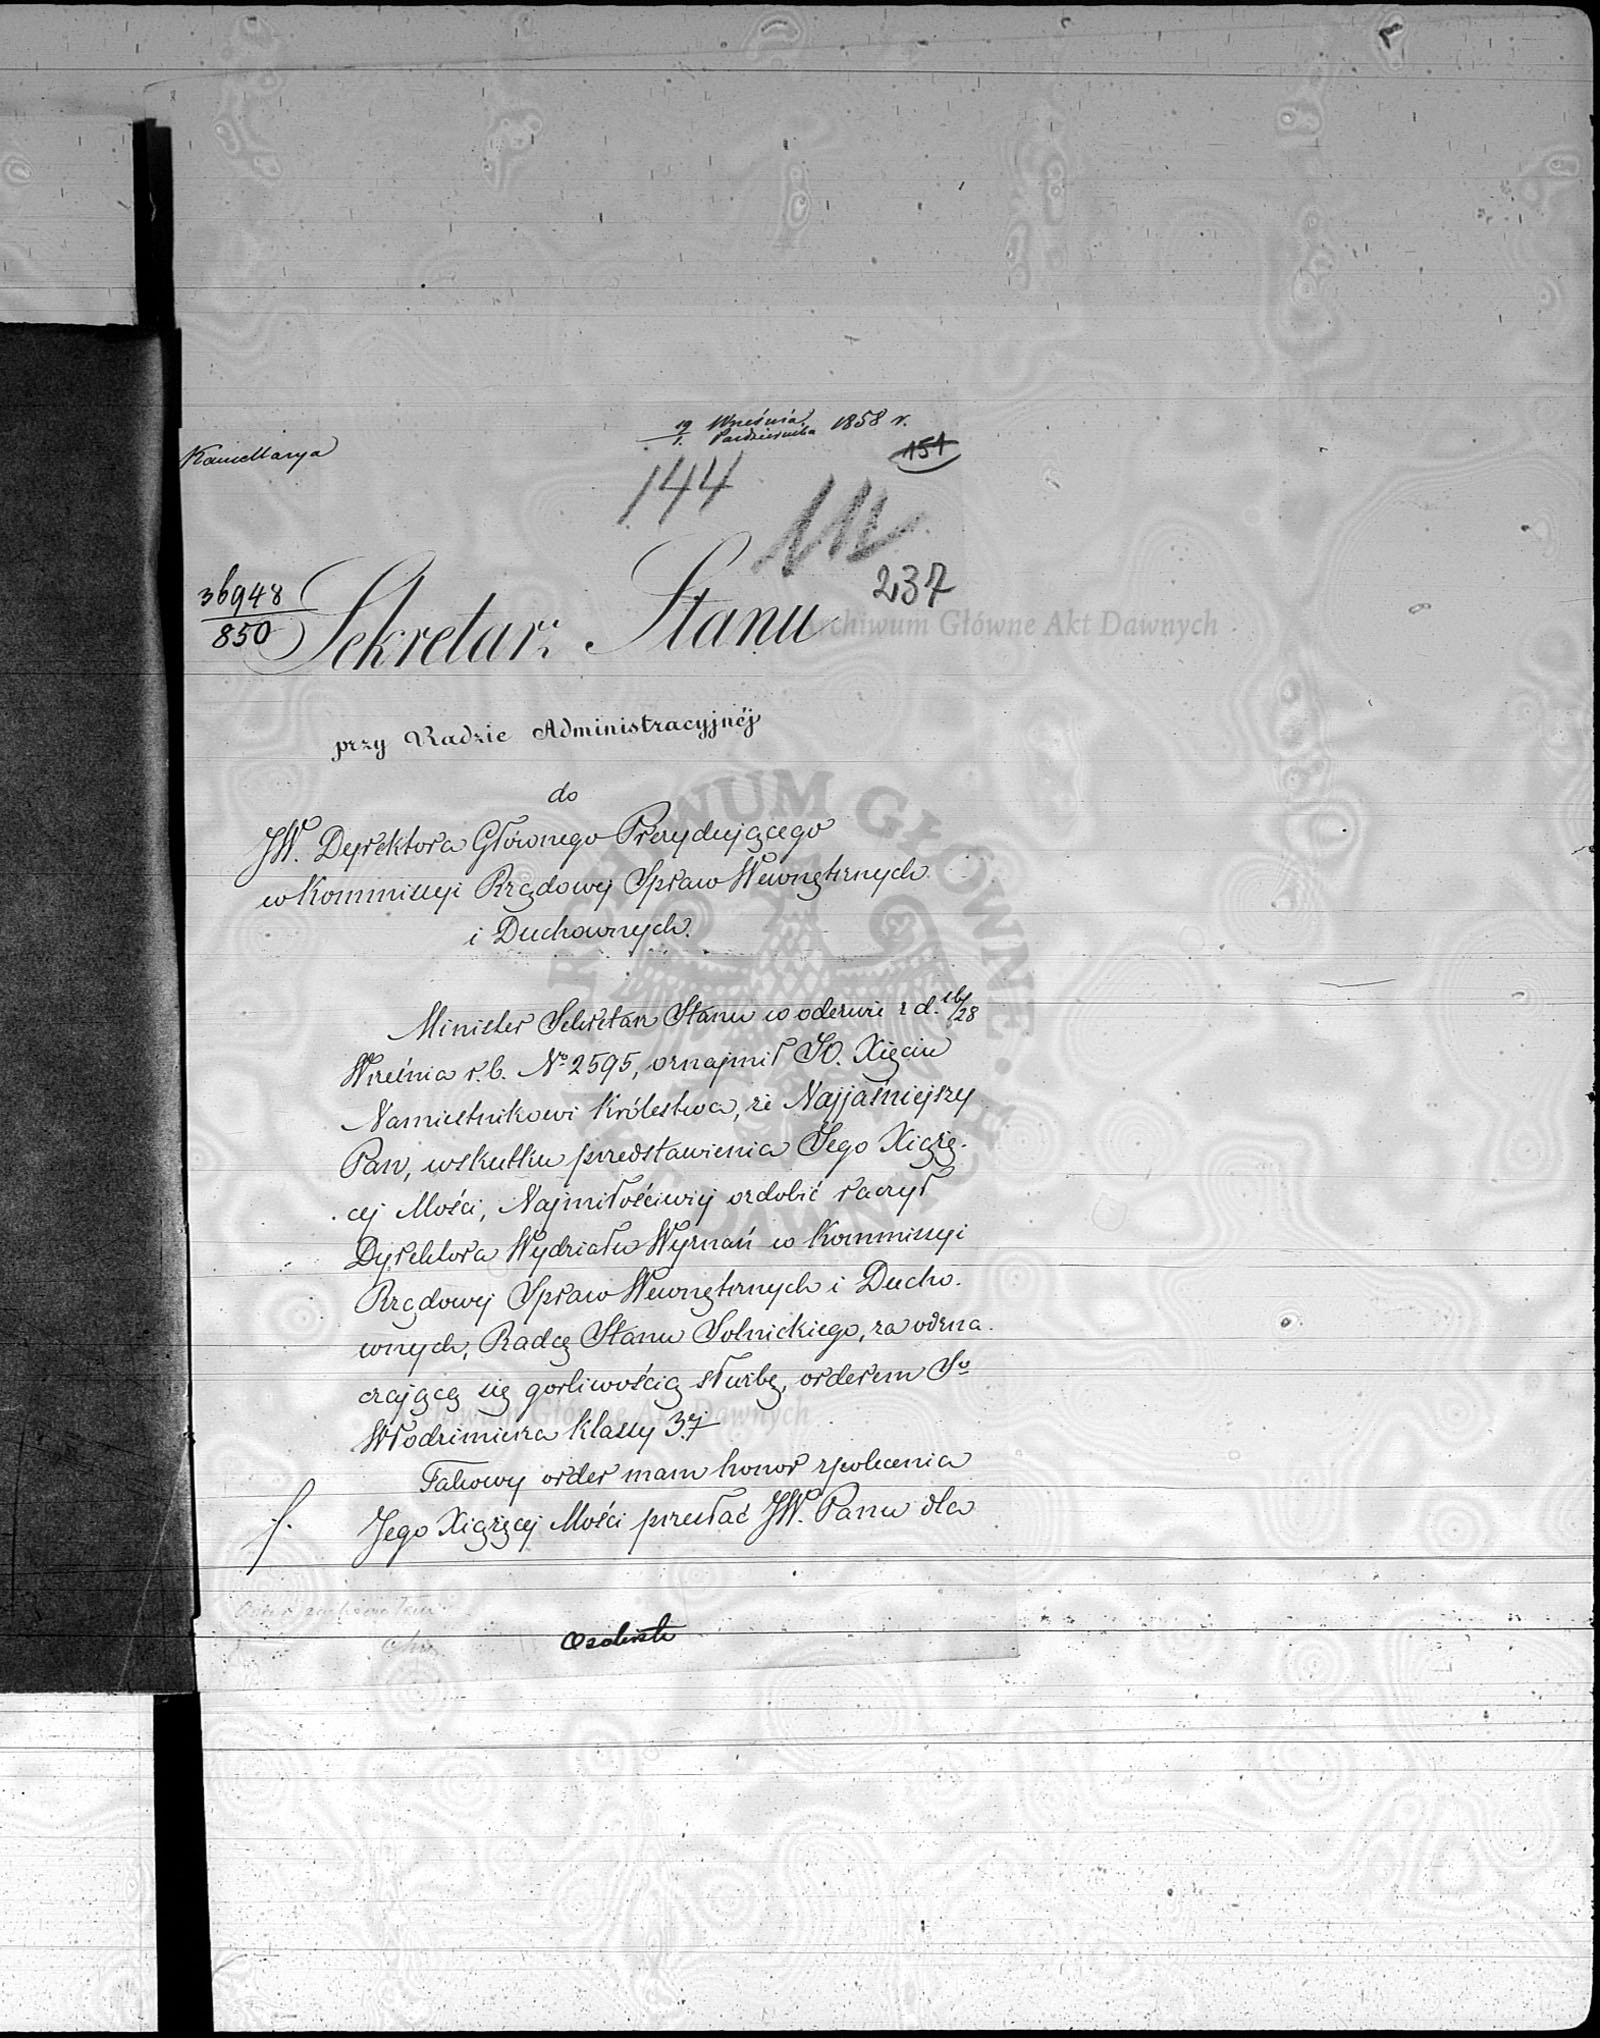 19 Września
1. Października 1858 r.
151
Kancellarya
144
112
36948
850
237
Sekretarz Stanu
przy Radzie Administracyjnéj
do
JW. Dyrektora Głównego Prezydującego
w Kommissyi Rządowej Spraw Wewnętrznych
i Duchownych.
Minister Sekretarz Stanu w odezwie z d. 16/28
Września r.b. No 2595, oznajmił JO. Xięciu
Namiestnikowi Królestwa, że Najjaśniejszy
Pan, wskutku przedstawienia Jego Xiążę-
cej Mości, Najmiłościwiej ozdobić raczył
Dyrektora Wydziału Wyznań w Kommissyi
Rządowej Spraw Wewnętrznych i Ducho-
wnych, Radcę Stanu Solnickiego, za odzna-
czającą się gorliwością służbę, orderem Sgo
Włodzimierza klassy 3ej
Takowy order mam honor z polecenia
Jego Xiążęcej Mości przesłać JW. Panu dla
Osobiste
Archiwum Główne Akt Dawnych
ARCHIWUM GŁÓWNE AKT DAWNYCH
Archiwum Główne Akt Dawnych